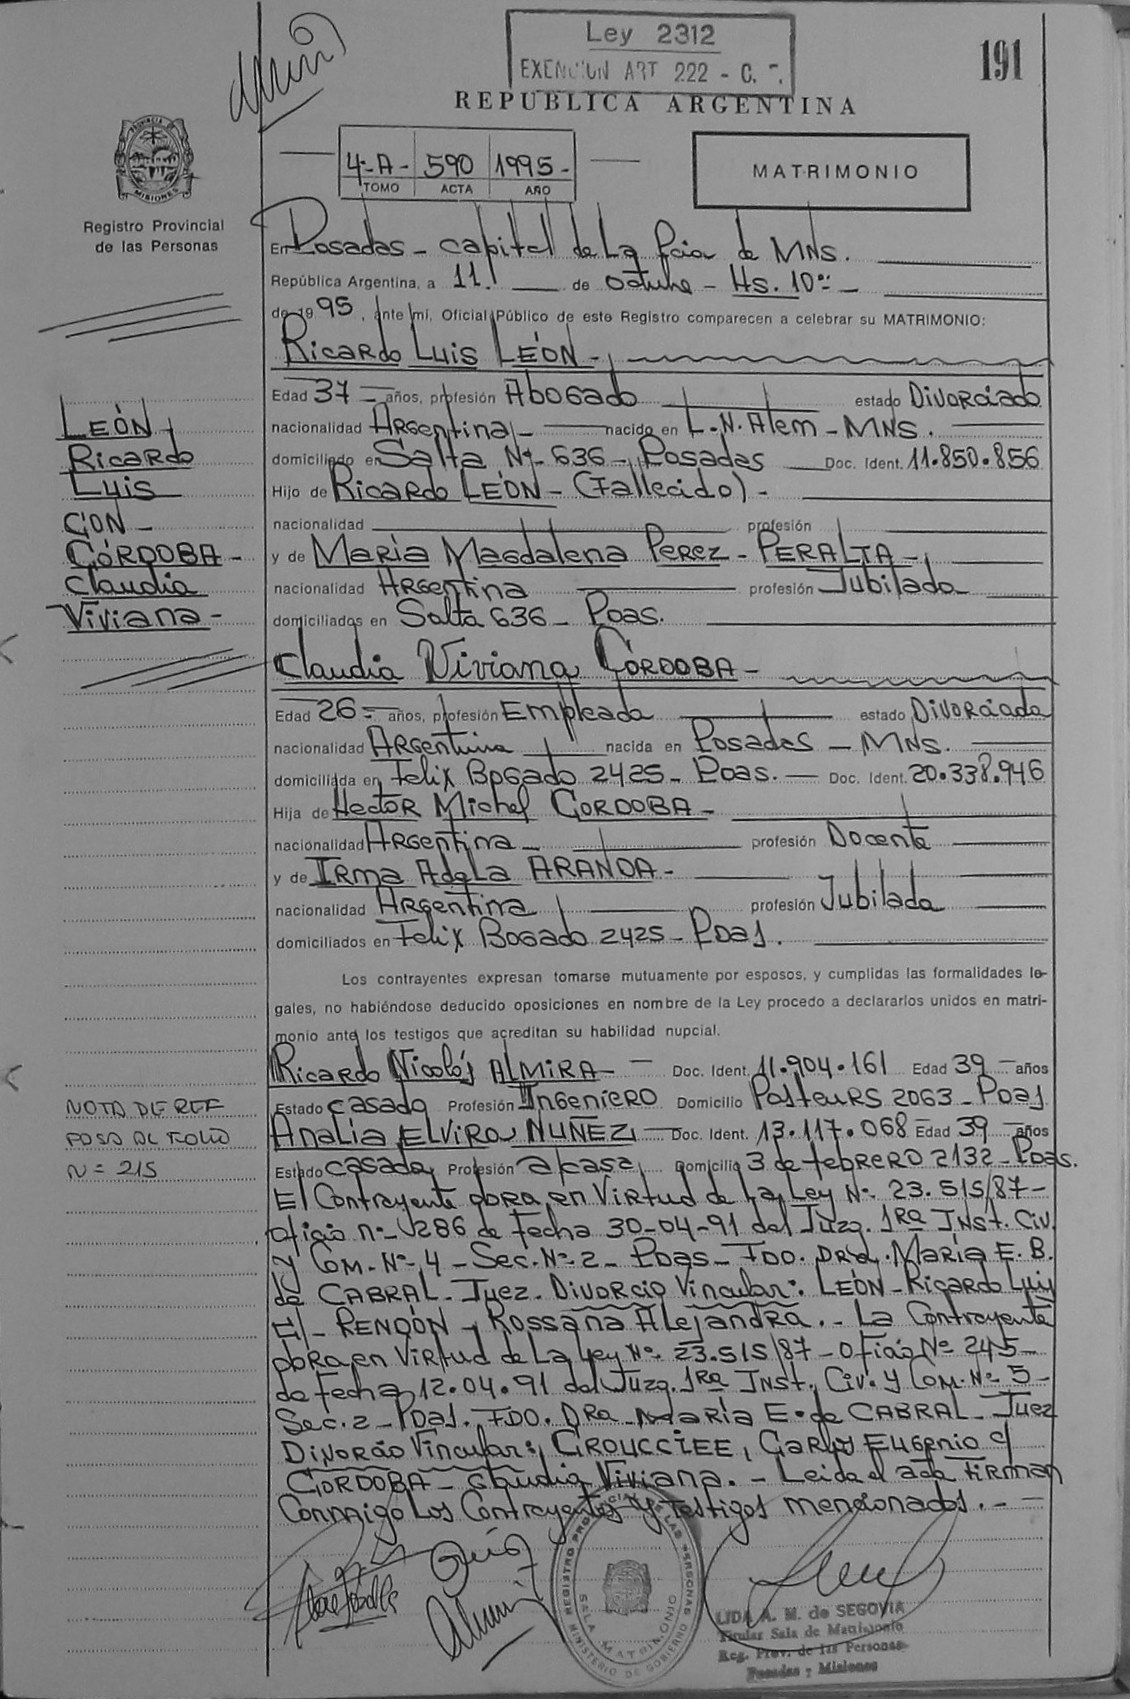 Ley 2312
EXENCION ART 222 - C.
191
REPUBLICA ARGENTINA
4º-A- 590 1995-
TOMO ACTA AÑO
MATRIMONIO
PROVINCIA DE MISIONES
Registro Provincial
de las Personas
En Posadas - capital de La Pcia de MNS.
República Argentina, a 11 de octubre - Hs. 10
de 1995, ante mí, Oficial Público de este Registro comparecen a celebrar su MATRIMONIO:
Ricardo Luis LEÓN -
Edad 37 - años, profesión Abogado estado Divorciado
nacionalidad Argentina nacido en L.N. Alem - MNS.
domiciliado en Salta Nº 636 - Posadas Doc. Ident. 11.850.856
Hijo de Ricardo LEÓN - (Fallecido) -
nacionalidad profesión
y de María Magdalena Perez - PERALTA -
nacionalidad Argentina profesión Jubilada
domiciliados en Salta 636 - Poas.
LEÓN
Ricardo
Luis
CON -
CÓRDOBA -
Claudia
Viviana -
Claudia Viviana CÓRDOBA -
Edad 26 - años, profesión Empleada estado Divorciada
nacionalidad Argentina nacida en Posadas - MNS.
domiciliada en Felix Bogado 2425 - Poas. Doc. Ident. 20.338.946
Hija de Hector Michel CORDOBA -
nacionalidad Argentina - profesión Docente
y de Irma Adela ARANDA -
nacionalidad Argentina profesión Jubilada
domiciliados en Felix Bogado 2425 - Pdas.
Los contrayentes expresan tomarse mutuamente por esposos, y cumplidas las formalidades le-
gales, no habiéndose deducido oposiciones en nombre de la Ley procedo a declararlos unidos en matri-
monio ante los testigos que acreditan su habilidad nupcial.
Ricardo Nicolás ALMIRA - Doc. Ident. 11.904.161 Edad 39 - años
Estado casado Profesión Ingeniero Domicilio Pasteurs 2063 - Pdas.
Analia ELVIRA NUÑEZ - Doc. Ident. 13.117.068 Edad 39 años
Estado casada Profesión a casa Domicilio 3 de febrero 2132 - Poas.
NOTA DE REF
PASA AL FOLIO
Nº 215
El Contrayente obra en Virtud de La Ley Nº 23.515/87 -
oficio nº 286 de Fecha 30-04-91 del Juzg. 1ra Inst. Civ.
y Com. Nº 4 - Sec. Nº 2 - Poas - FDO. DRA. María E. B.
de CABRAL - Juez - Divorcio Vincular: LEÓN - Ricardo Luis
c/ - RENDÓN - Rossana Alejandra. - La Contrayente
obra en Virtud de La Ley Nº 23.515/87 - Oficio Nº 245 -
de Fecha 12.04.91 del Juzg. 1ra Inst. Civ. y Com. Nº 5 -
Sec. 2 - Pdas. FDO. DRA. María E. de CABRAL - Juez
Divorcio Vincular: GROUCCIEE, Carlos Eugenio c/
CORDOBA - Claudia Viviana. - Leida el acta Firman
Conmigo Los Contrayentes y testigos mencionados. -
REGISTRO PROVINCIAL DE LAS PERSONAS
SALA MATRIMONIO
MINISTERIO DE GOBIERNO
LIDA A. M. de SEGOVIA
Titular Sala de Matrimonio
Reg. Prov. de las Personas
Posadas - Misiones